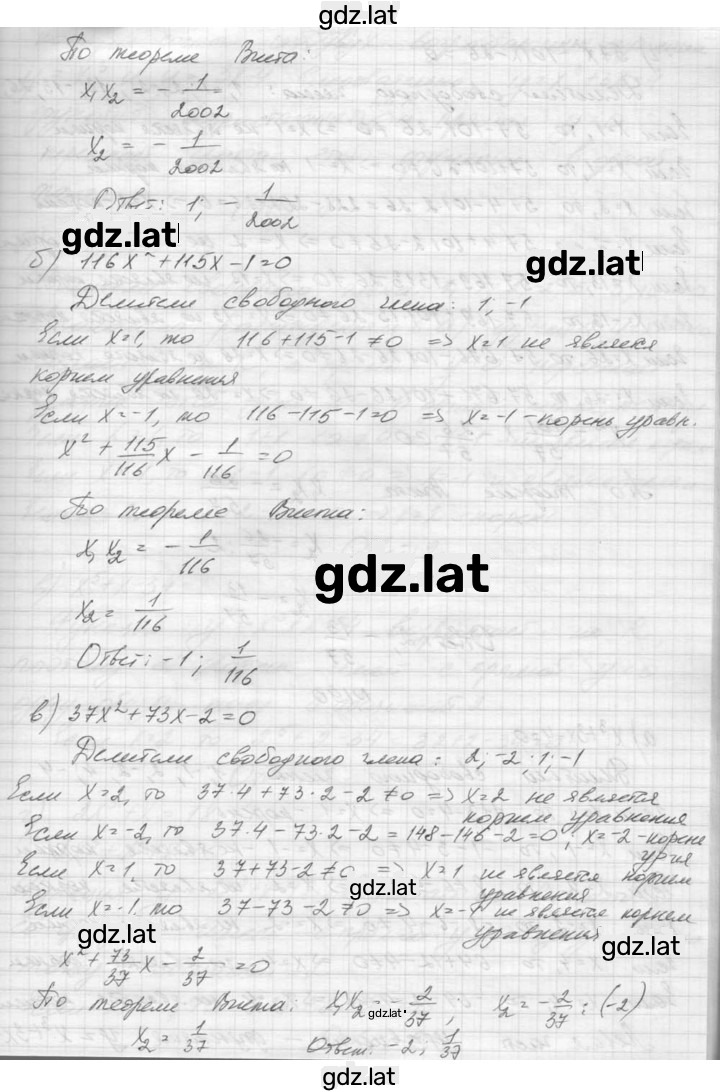 gdz.lat
По теореме Виета:
x₁x₂ = - 1/2002
x₂ = - 1/2002
Ответ: 1; - 1/2002
gdz.lat
gdz.lat
б) 116x² + 115x - 1 = 0
Делители свободного члена: 1; -1
Если x=1, то 116+115-1 ≠ 0 => x=1 не является
корнем уравнения
Если x=-1, то 116-115-1=0 => x=-1 - корень уравн.
x² + 115/116 x - 1/116 = 0
По теореме Виета:
x₁x₂ = - 1/116
gdz.lat
x₂ = 1/116
Ответ: -1; 1/116
в) 37x² + 73x - 2 = 0
Делители свободного члена: 2; -2; 1; -1
Если x=2, то 37·4+73·2-2 ≠ 0 => x=2 не является
корнем уравнения
Если x=-2, то 37·4-73·2-2 = 148-146-2=0, x=-2 - корень
Если x=1, то 37+73-2 ≠ 0 => x=1 не является корнем
уравнения
gdz.lat
Если x=-1 то 37-73-2 ≠ 0 => x=-1 не является корнем
уравнения
gdz.lat
gdz.lat
x² + 73/37 x - 2/37 = 0
По теореме Виета: x₁x₂ = - 2/37; x₂ = - 2/37 : (-2)
gdz.lat
x₂ = 1/37 Ответ: -2; 1/37
gdz.lat